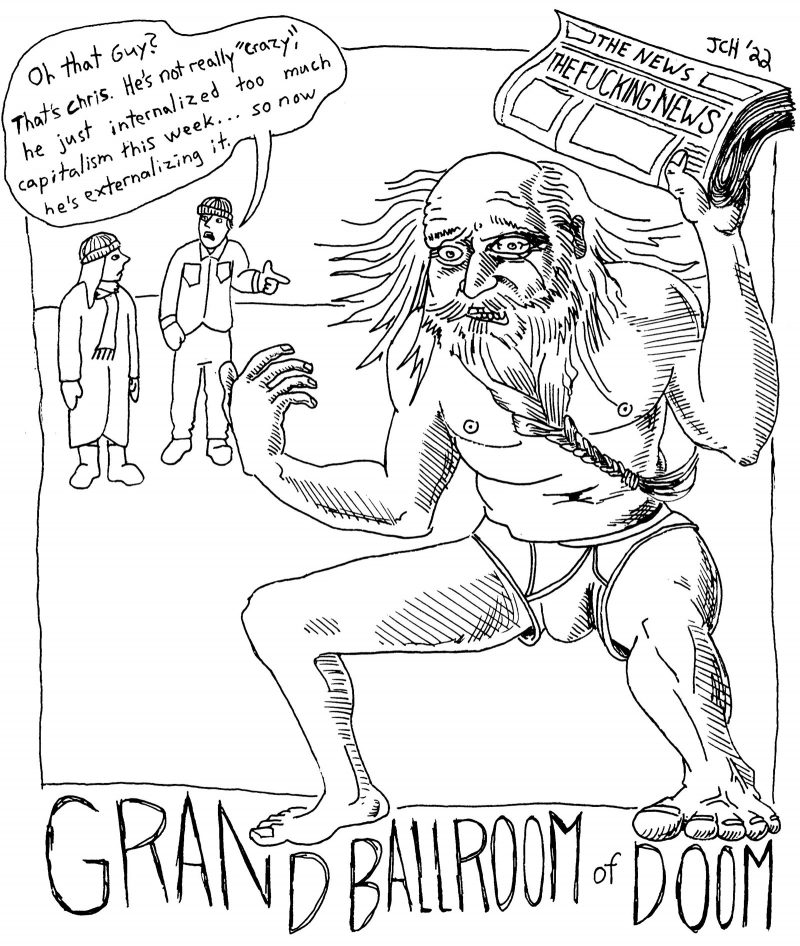 Oh that Guy?
That's Chris. He's not really "crazy",
he just internalized too much
capitalism this week... so now
he's externalizing it.
JCH '22
THE NEWS
THE FUCKING NEWS
GRAND BALLROOM of DOOM